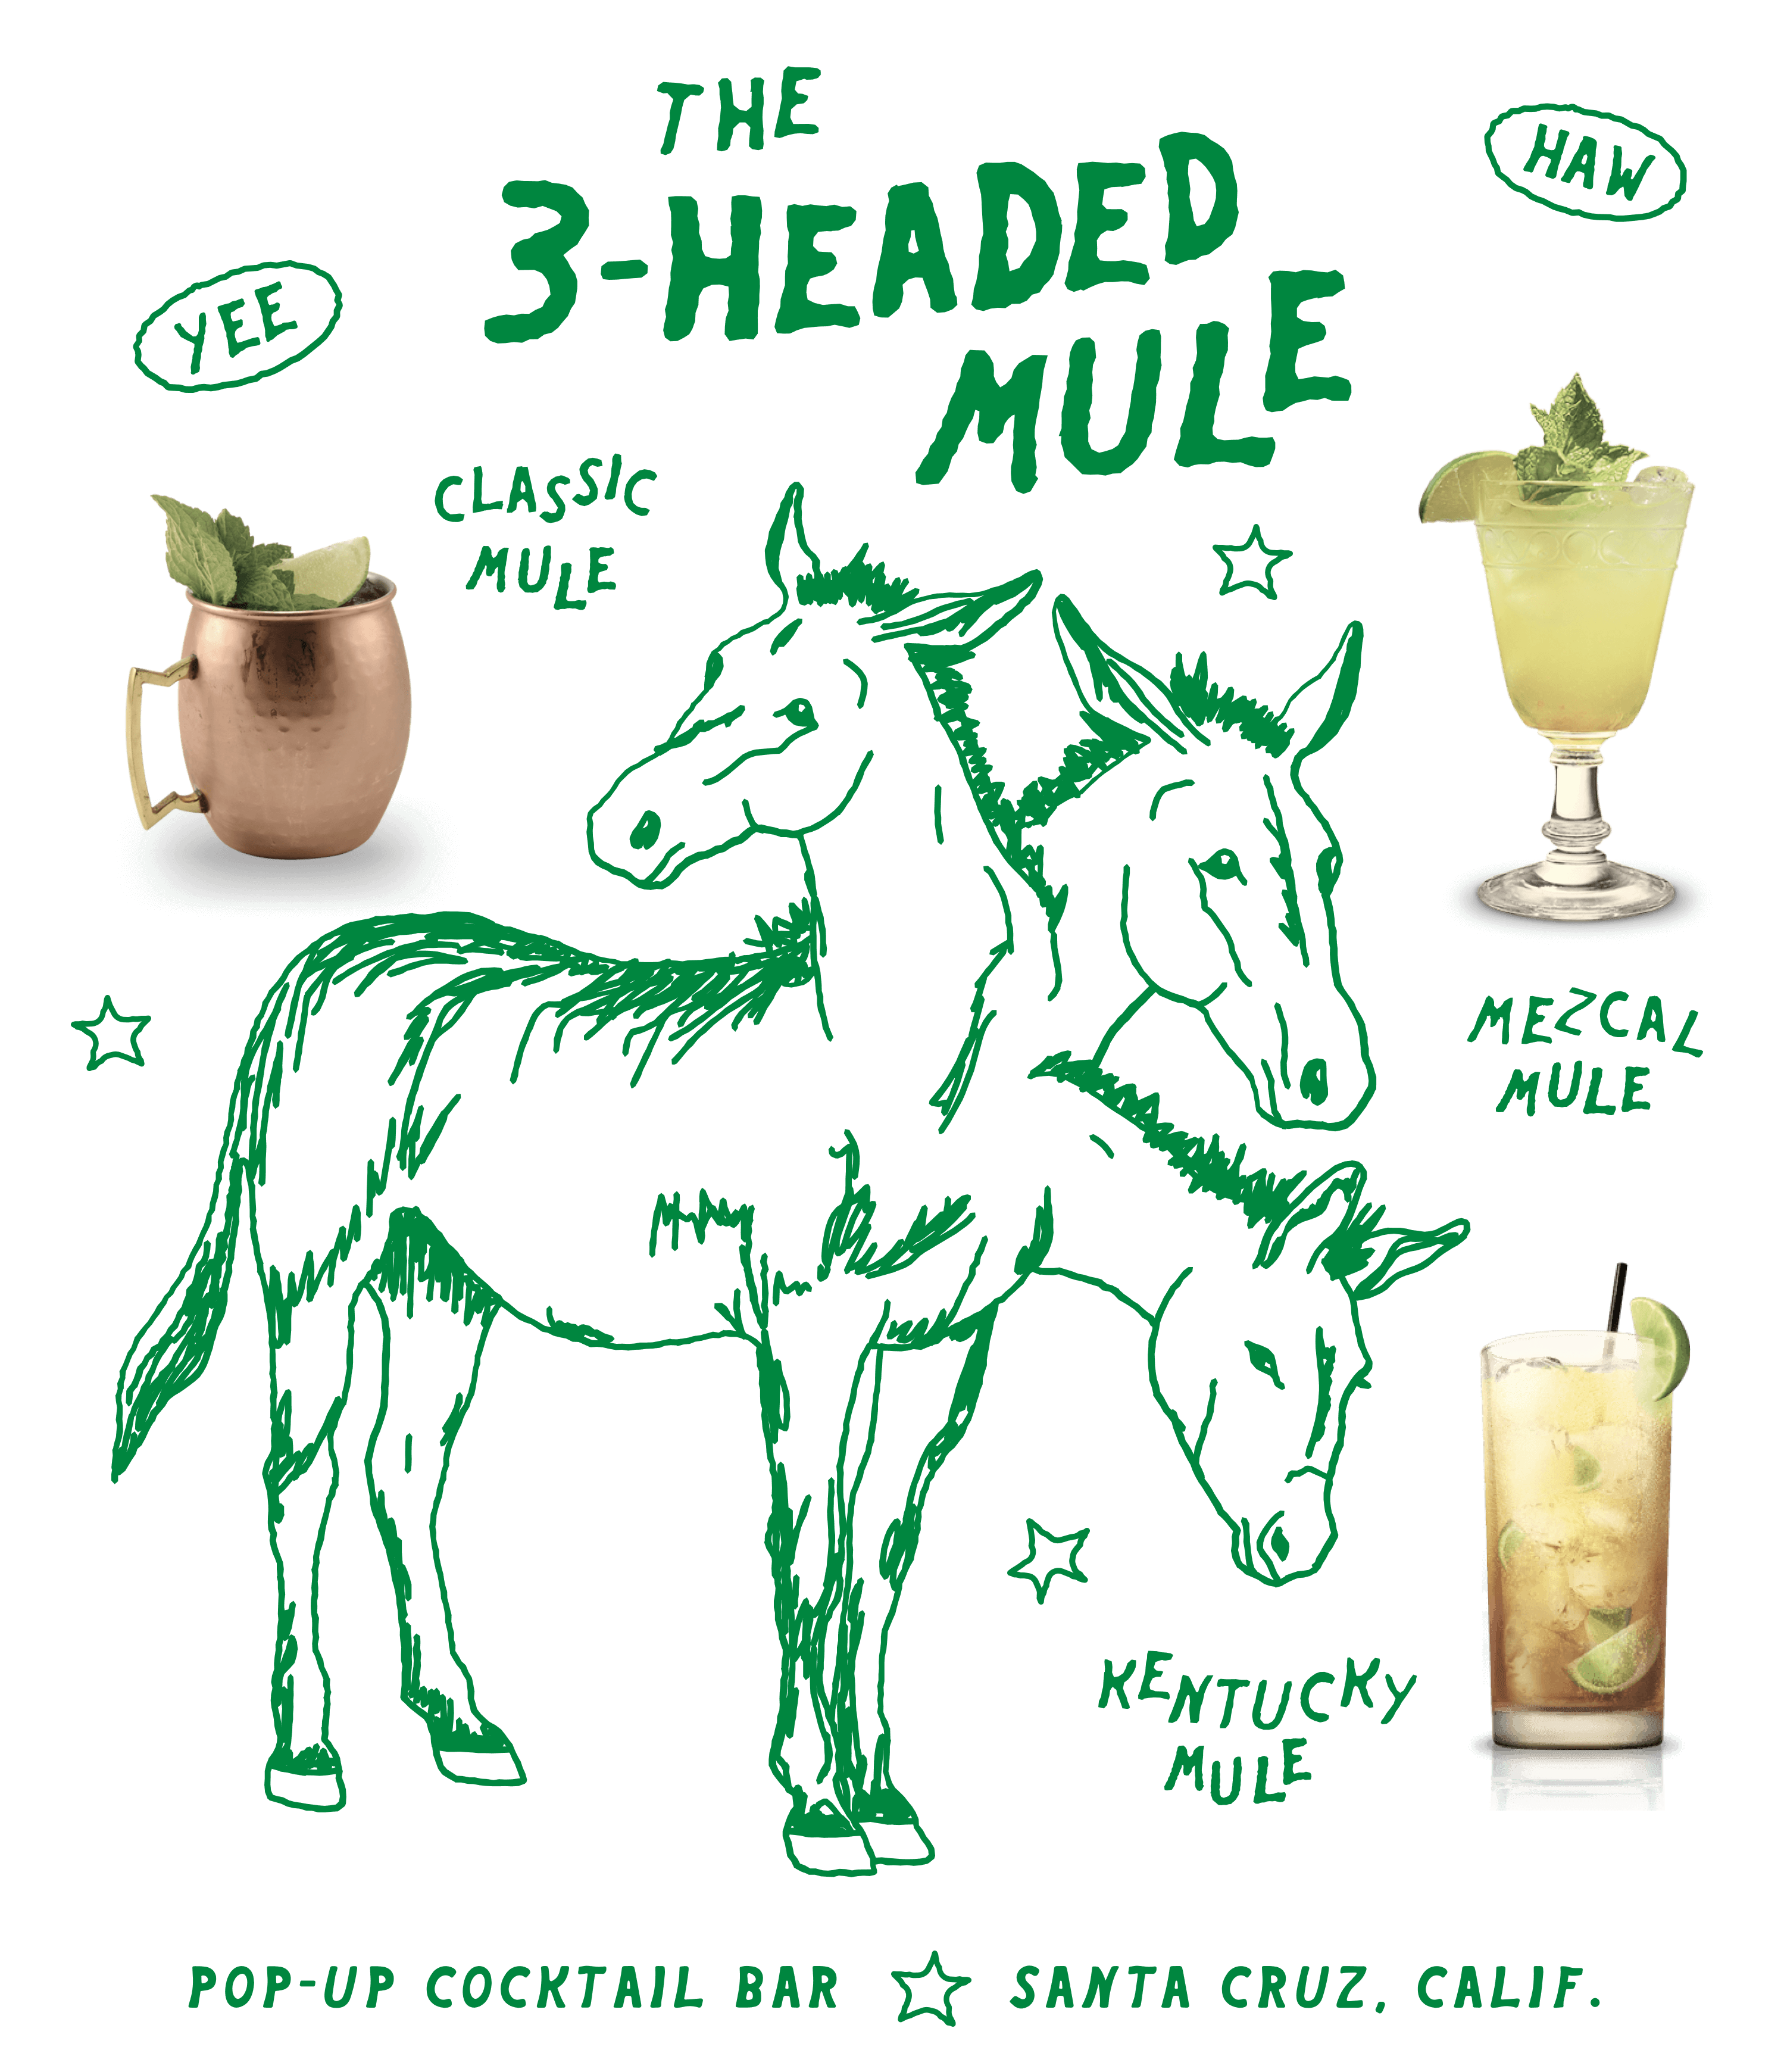 THE
3-HEADED
MULE
YEE
HAW
CLASSIC
MULE
MEZCAL
MULE
KENTUCKY
MULE
POP-UP COCKTAIL BAR
SANTA CRUZ, CALIF.